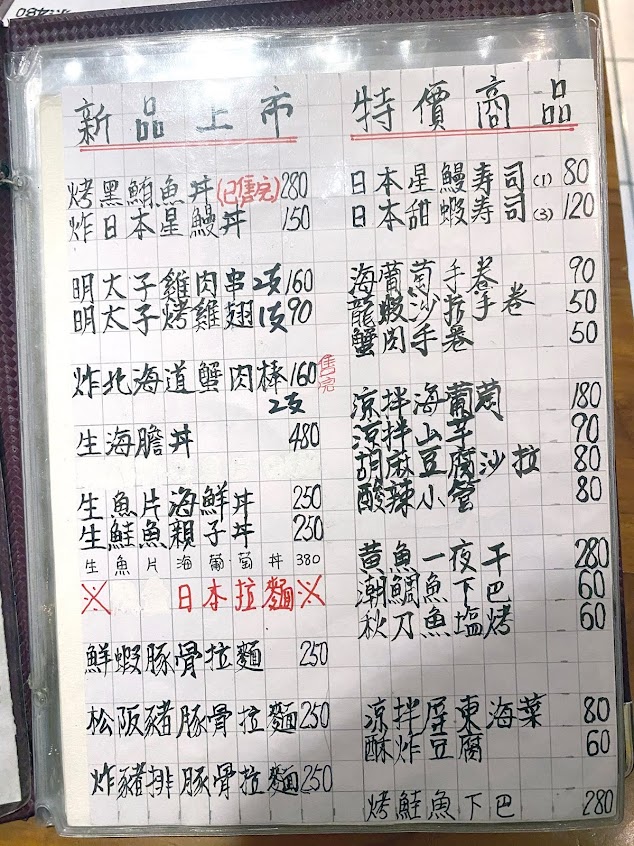 新品上市
烤黑鮪魚丼(已售完)280
炸日本星鰻丼 150
明太子雞肉串2支160
明太子烤雞翅1支90
炸北海道蟹肉棒160售完
2支
生海膽丼 480
生魚片海鮮丼 250
生鮭魚親子丼 250
生魚片海葡萄丼 380
※ 日本拉麵※
鮮蝦豚骨拉麵 250
松阪豬豚骨拉麵250
炸豬排豚骨拉麵250
特價商品
日本星鰻寿司(1) 80
日本甜蝦寿司(3) 120
海葡萄手卷 90
龍蝦沙拉手卷 50
蟹肉手卷 50
涼拌海葡萄 180
涼拌山芋 90
胡麻豆腐沙拉 80
酸辣小管 80
黃魚一夜干 280
潮鯛魚下巴 60
秋刀魚塩烤 60
涼拌屏東海菜 80
酥炸豆腐 60
烤鮭魚下巴 280